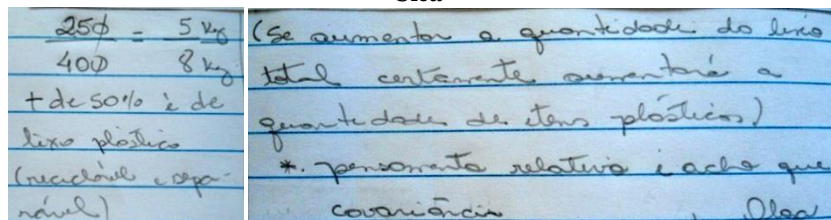 250/400 = 5 kg/8 kg
+ de 50% é de
lixo plástico
(reciclável e sepa-
rável)
(Se aumentar a quantidade do lixo
total certamente aumentará a
quantidade de itens plásticos)
*. pensamento relativo é acho que
covariância